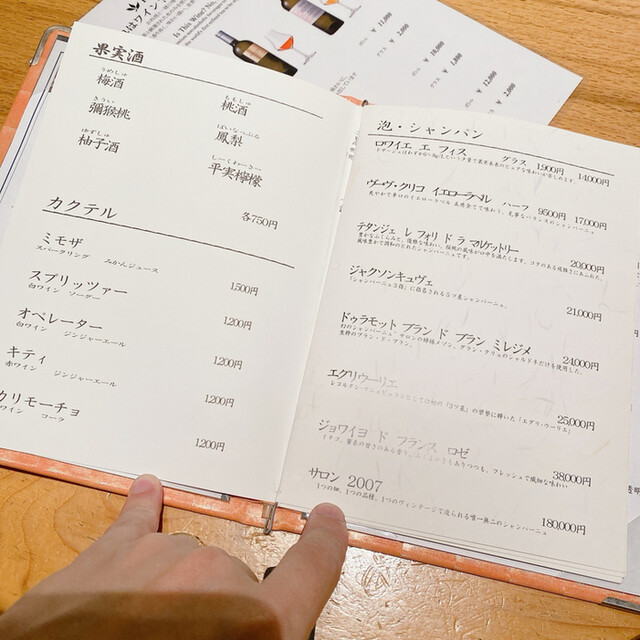 はワイン
Is This Wine? No,
¥ 11,000
¥ 2,000
¥ 10,000
¥ 1,800
¥ 12,000
¥ 2,000
果実酒
うめしゅ
梅酒
ももしゅ
桃酒
きうい
獼猴桃
ぱいなっぷる
鳳梨
ゆずしゅ
柚子酒
しーくわーさー
平実檸檬
各750円
カクテル
ミモザ
スパークリング みかんジュース
1,500円
スプリッツァー
白ワイン ソーダー
1,200円
オペレーター
白ワイン ジンジャーエール
1,200円
キティ
赤ワイン ジンジャーエール
1,200円
カリモーチョ
ワイン コーラ
1,200円
泡・シャンパン
ロワイエ エ フィス グラス 1,900円 14,000円
ヴーヴ・クリコ イエローラベル ハーフ 9500円 17,000円
テタンジェ レ フォリ ド ラ マルケットリー
20,000円
ジャクソンキュヴェ
「シャンパーニュ3指」に指名される5つ星シャンパーニュ。
21,000円
ドゥラモット ブラン ド ブラン ミレジメ
24,000円
エグリウーリエ
25,000円
ジョワイヨ ド フランス ロゼ
38,000円
サロン 2007
1つの畑、1つの品種、1つのヴィンテージで造られる唯一無二のシャンパーニュ
180,000円